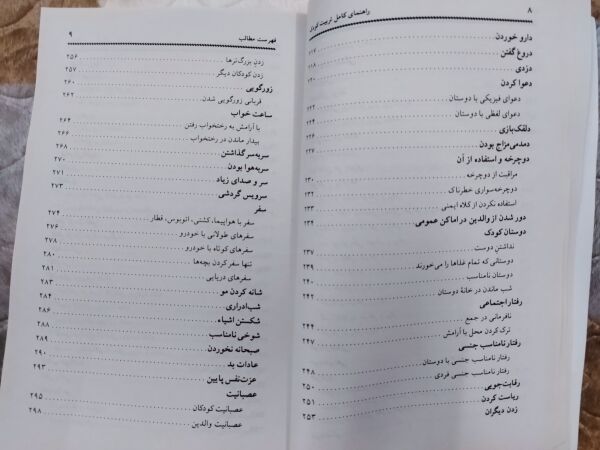 ۸ راهنمای کامل تربیت کودک
دارو خوردن ۲۱۷
دروغ گفتن ۲۱۸
دزدی
دعوا کردن ۲۲۰
دعوای فیزیکی با دوستان ۲۲۲
دعوای لفظی با دوستان ۲۲۴
دلقک‌بازی ۲۲۶
دمدمی‌مزاج بودن ۲۲۷
دوچرخه و استفاده از آن
مراقبت از دوچرخه ۲۳۰
دوچرخه‌سواری خطرناک ۲۳۲
استفاده نکردن از کلاه ایمنی ۲۳۳
دور شدن از والدین در اماکن عمومی ۲۳۴
دوستان کودک
نداشتن دوست ۲۳۷
دوستانی که تمام غذاها را می‌خورند ۲۳۹
دوستان نامناسب ۲۴۰
شب ماندن در خانهٔ دوستان ۲۴۲
رفتار اجتماعی
نافرمانی در جمع ۲۴۴
ترک کردن محل با آرامش ۲۴۷
رفتار نامناسب جنسی
رفتار نامناسب جنسی با دوستان ۲۴۸
رفتار نامناسب جنسی فردی
رقابت‌جویی ۲۵۰
ریاست کردن ۲۵۱
زدن دیگران ۲۵۳
فهرست مطالب ۹
زدن بزرگ‌ترها ۲۵۶
زدن کودکان دیگر ۲۵۷
زورگویی ۲۶۰
قربانی زورگویی شدن ۲۶۲
ساعت خواب
با آرامش به رختخواب رفتن ۲۶۴
بیدار ماندن در رختخواب ۲۶۶
سربه‌سر گذاشتن ۲۶۸
سربه‌هوا بودن ۲۷۰
سر و صدای زیاد ۲۷۱
سرویس گردشی ۲۷۳
سفر
سفر با هواپیما، کشتی، اتوبوس، قطار ۲۷۴
سفرهای طولانی با خودرو ۲۷۶
سفرهای کوتاه با خودرو ۲۷۸
تنها سفر کردن بچه‌ها ۲۸۰
سفرهای دریایی ۲۸۱
شانه کردن مو ۲۸۳
شب‌ادراری ۲۸۴
شکستن اشیاء ۲۸۶
شوخی نامناسب ۲۸۸
صبحانه نخوردن ۲۸۹
عادات بد ۲۹۰
عزت‌نفس پایین ۲۹۳
عصبانیت
عصبانیت کودکان ۲۹۵
عصبانیت والدین ۲۹۸